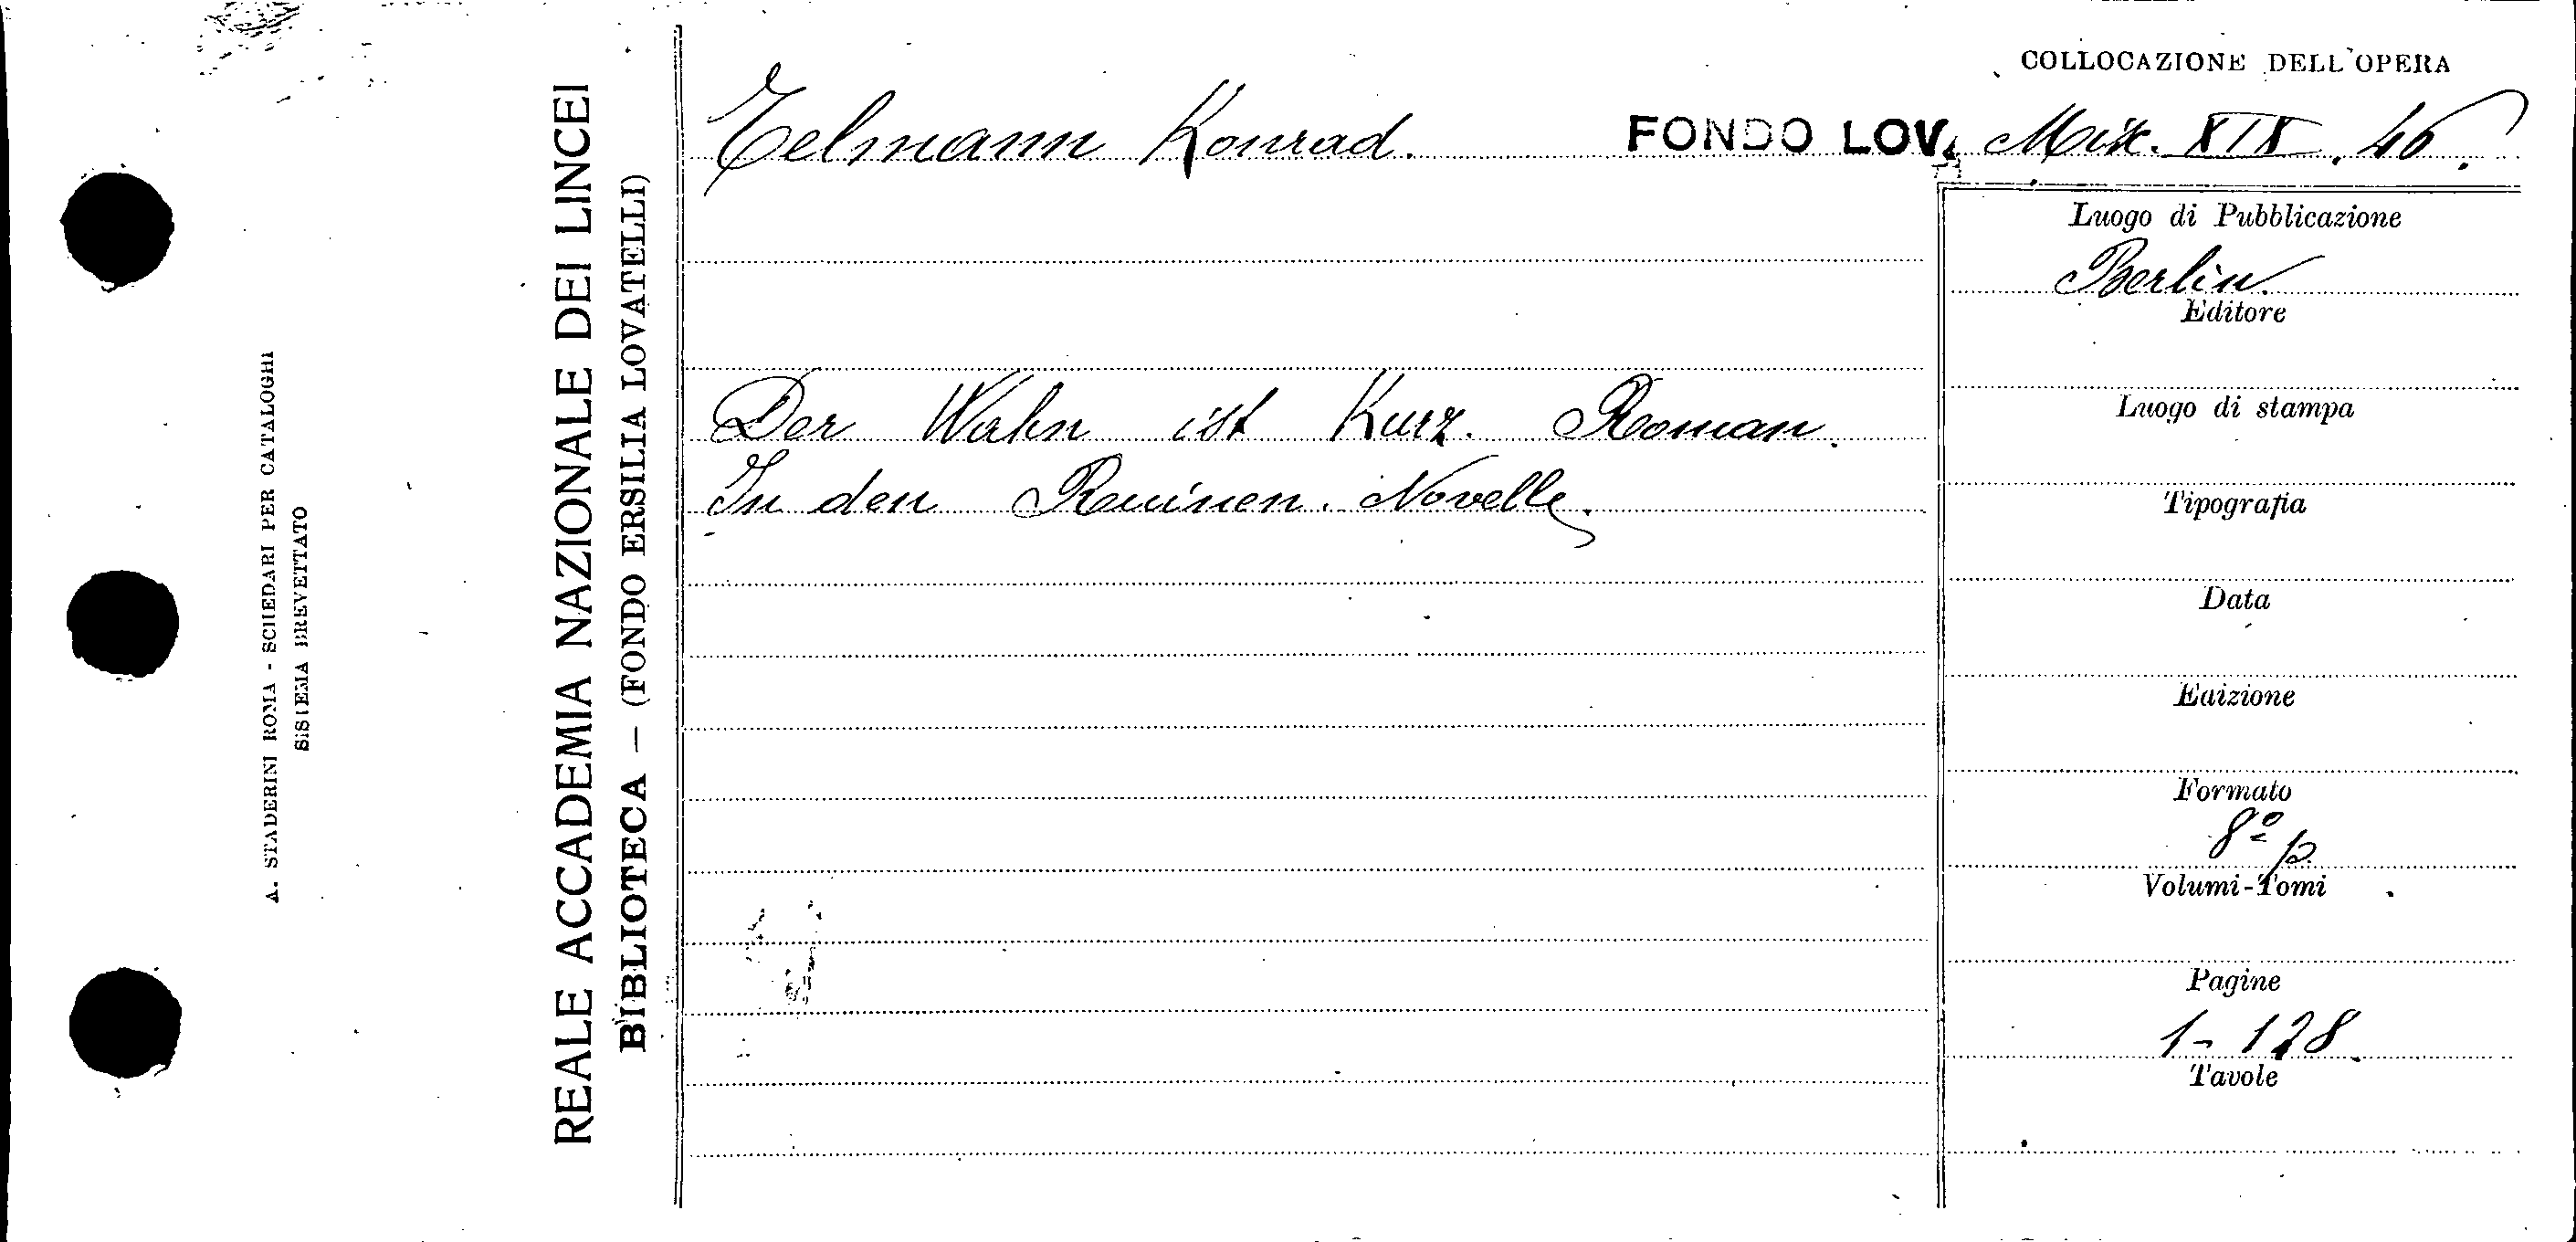 COLLOCAZIONE DELL'OPERA
Telmann Konrad. FONDO LOV. Misc. XIX. 46.
Der Wahn ist Kurz. Roman.
In den Ruinen. Novelle.
Luogo di Pubblicazione
Berlin
Editore
Luogo di stampa
Tipografia
Data
Edizione
Formato
8º p.
Volumi-Tomi
Pagine
1-128.
Tavole
REALE ACCADEMIA NAZIONALE DEI LINCEI
BIBLIOTECA — (FONDO ERSILIA LOVATELLI)
A. STADERINI ROMA - SCHEDARI PER CATALOGHI
SISTEMA BREVETTATO